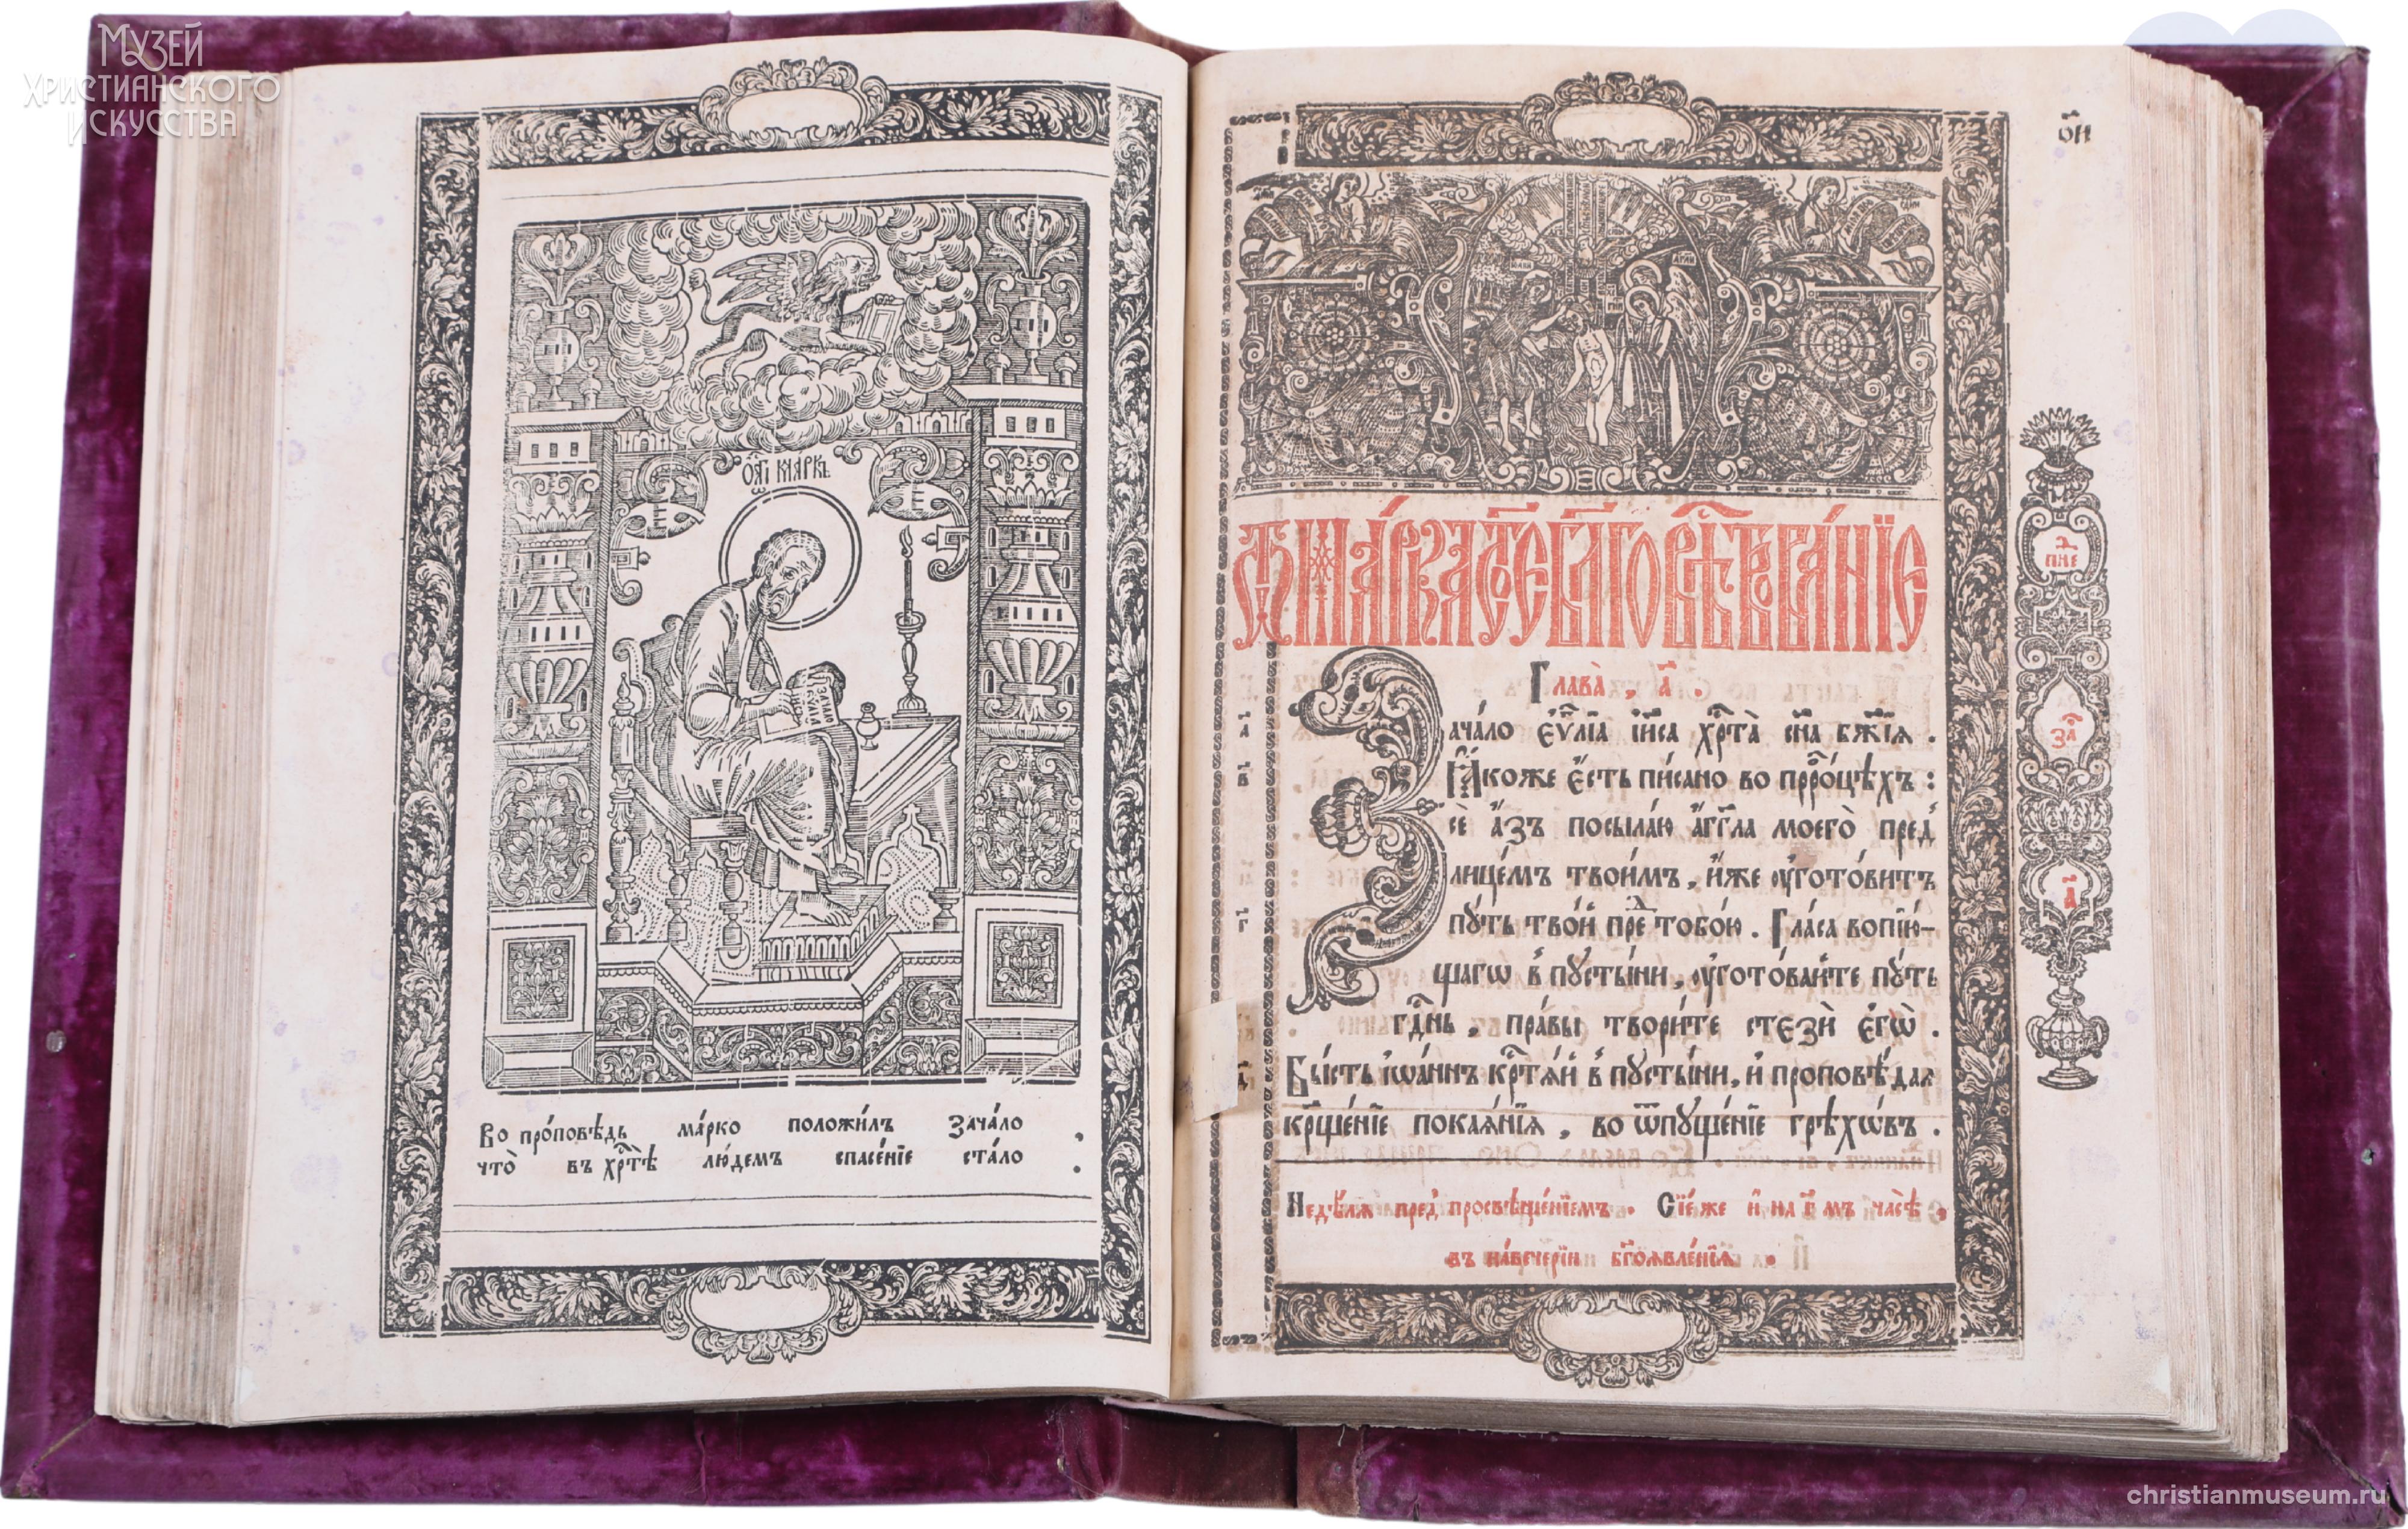 Музей
Христианского
искусства
ст҃ы́й ма́ркъ
Во про́повѣдь ма́рко положи́лъ зача́ло ,
что̀ въ хрⷭ҇тѣ̀ лю́демъ спасе́нїе ста́ло .
о҃и
Ѿ ма́рка ст҃о́е бл҃говѣствова́нїе
Глава̀, а҃ .
Зача́ло є҆ѵⷢ҇лїа і҆и҃са хрⷭ҇та̀ сн҃а бж҃їѧ .
Ꙗ҆́коже є҆́сть пи́сано во прⷪ҇ро́цѣхъ :
сѐ а҆́зъ посыла́ю а҆́гг҃ла моего̀ пред̾
лице́мъ твои́мъ , и҆́же ᲂу҆гото́витъ
пу́ть тво́й преⷣ тобо́ю . Гла́са вопїю́-
щагѡ в̾ пусты́ни , ᲂу҆гото́вайте пу́ть
гдⷭ҇нь , пра́вы твори́те стєзѝ є҆гѡ̀ .
Бы́сть і҆ѡа́ннъ крⷭ҇тѧ́й в̾ пусты́ни , и҆ проповѣ́даѧ
крⷳ҇ще́нїе покаѧ́нїѧ , во ѿпуще́нїе грѣхѡ́въ .
Недѣ́лѧ пред̾ просвѣще́нїемъ . Сїе́же и҆ на г҃мъ часѣ̀ ,
въ наве́черїи бг҃оѧвле́нїѧ .
а҃
в҃
г҃
д҃
пне
за҄
а҃
christianmuseum.ru